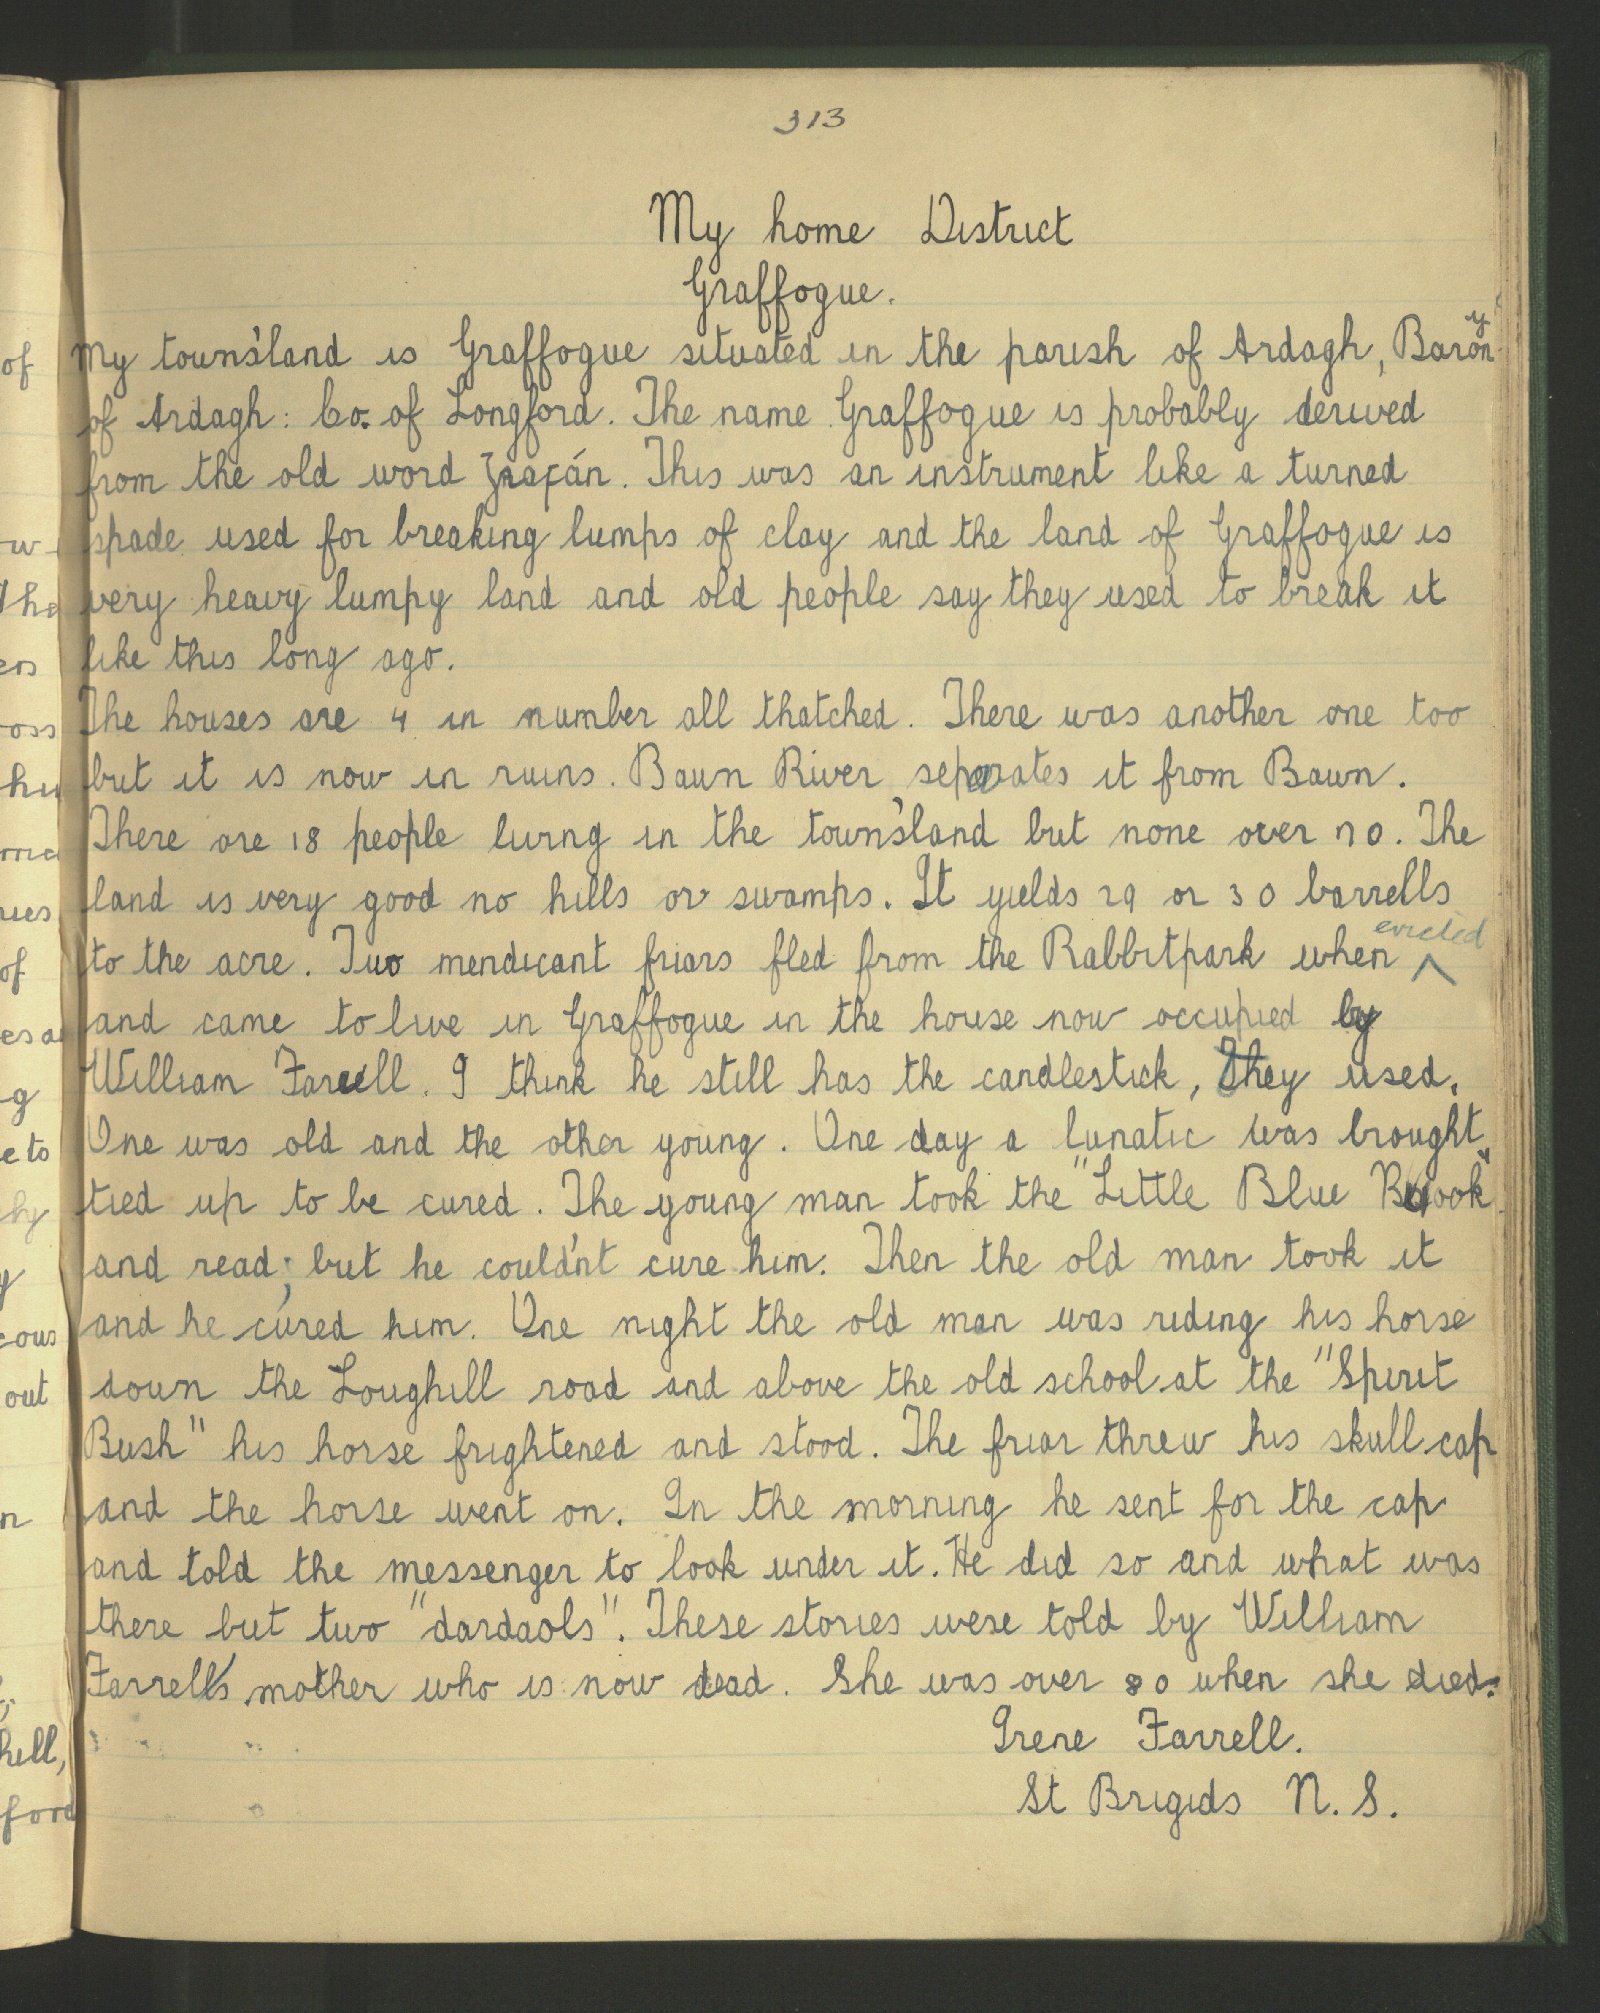 313
My home District
Graffogue.
My towns'land is Graffogue situated in the parish of Ardagh, Barony
of Ardagh: Co. of Longford. The name Graffogue is probably derived
from the old word Grafán. This was an instrument like a turned
spade used for breaking lumps of clay and the land of Graffogue is
very heavy lumpy land and old people say they used to break it
like this long ago.
The houses are 4 in number all thatched. There was another one too
but it is now in ruins. Baun River separates it from Bawn.
There are 18 people living in the towns'land but none over 70. The
land is very good no hills or swamps. It yields 29 or 30 barrells
to the acre. Two mendicant friars fled from the Rabbitpark when evicted
and came to live in Graffogue in the house now occupied by
William Farrell. I think he still has the candlestick, they used.
One was old and the other young. One day a lunatic was brought
tied up to be cured. The young man took the "Little Blue Book"
and read; but he could'nt cure him. Then the old man took it
and he cured him. One night the old man was riding his horse
down the Loughill road and above the old school at the "Spirit
Bush" his horse frightened and stood. The friar threw his skull cap
and the horse went on. In the morning he sent for the cap
and told the messenger to look under it. He did so and what was
there but two "dardaols". These stories were told by William
Farrell's mother who is now dead. She was over 80 when she died.
Irene Farrell.
St Brigids N.S.